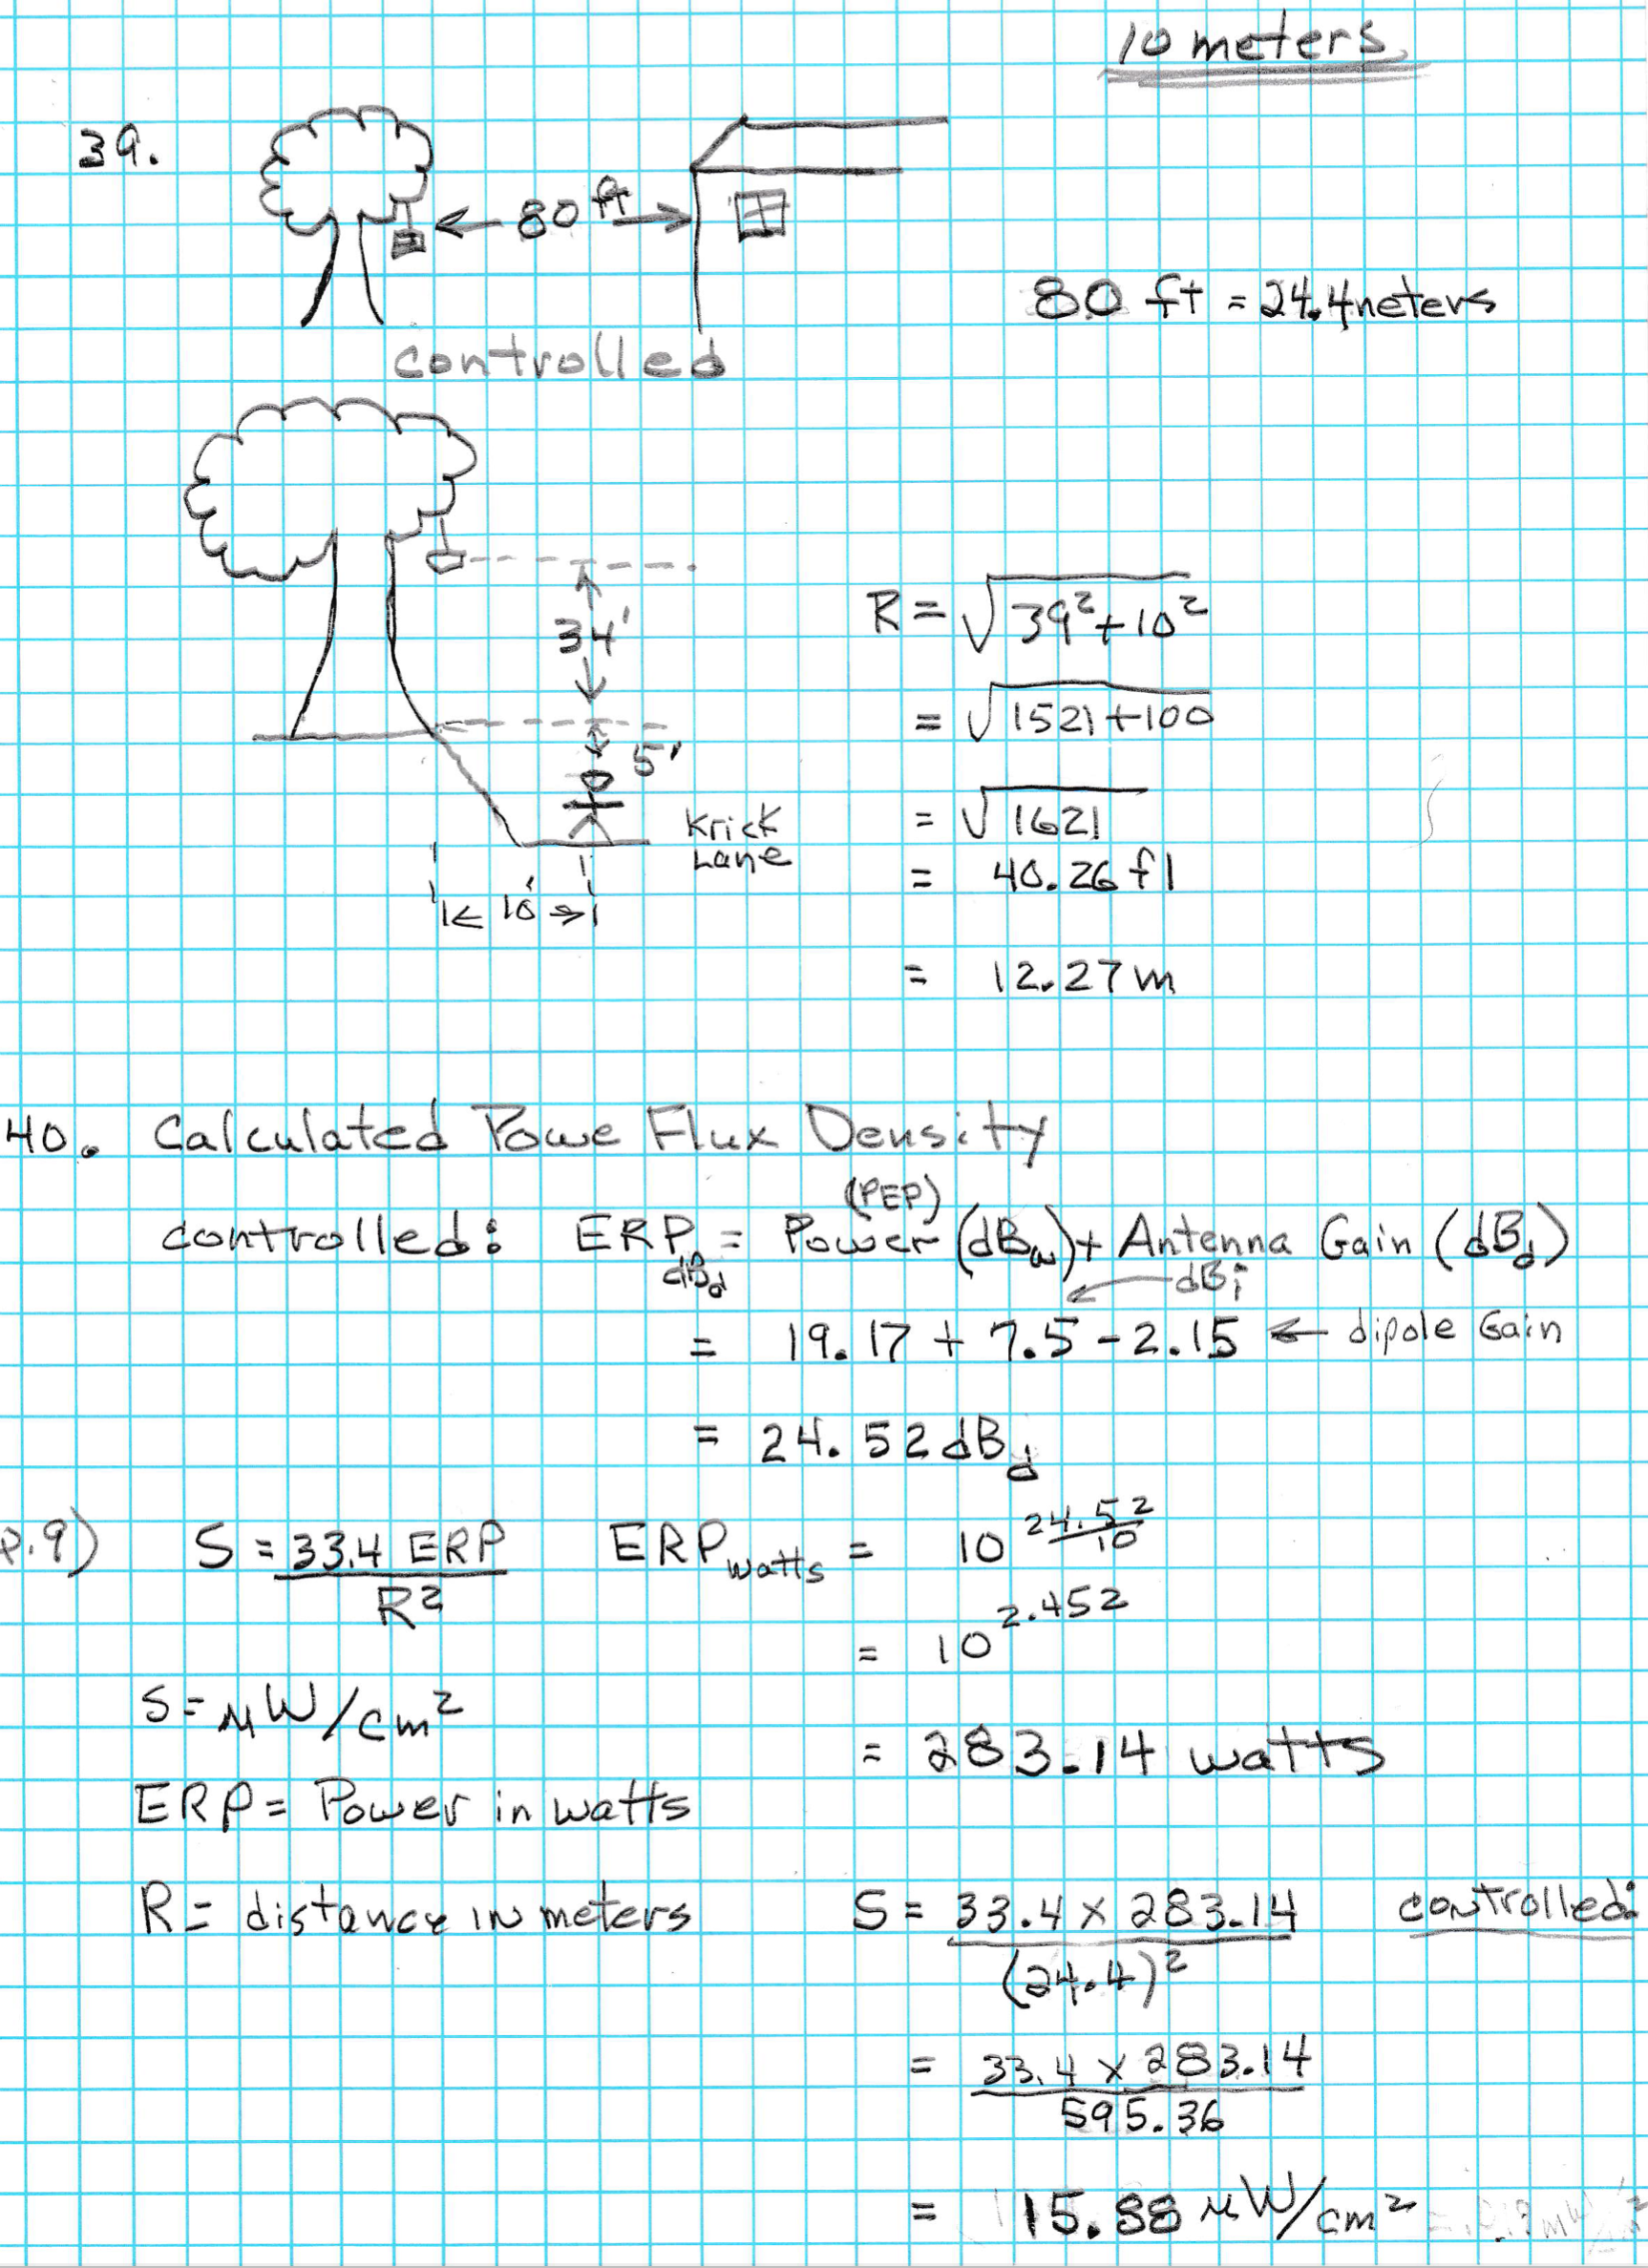 10 meters
39.
80 ft
80 ft = 24.4 meters
controlled
34'
5'
Krick
Lane
10'
R = √39²+10²
= √1521+100
= √1621
= 40.26 ft
= 12.27 m
40. Calculated Powe Flux Density
(PEP)
controlled: ERP dBd = Power (dBw) + Antenna Gain (dBd)
dBi
= 19.17 + 7.5 - 2.15 ← dipole Gain
= 24.52 dBd
p.9) S = 33.4 ERP / R² ERP watts = 10^(24.52/10)
= 10^2.452
S = μW/cm²
= 283.14 watts
ERP = Power in watts
R = distance in meters
S = 33.4 x 283.14 / (24.4)² controlled:
= 33.4 x 283.14 / 595.36
= 15.88 μW/cm²